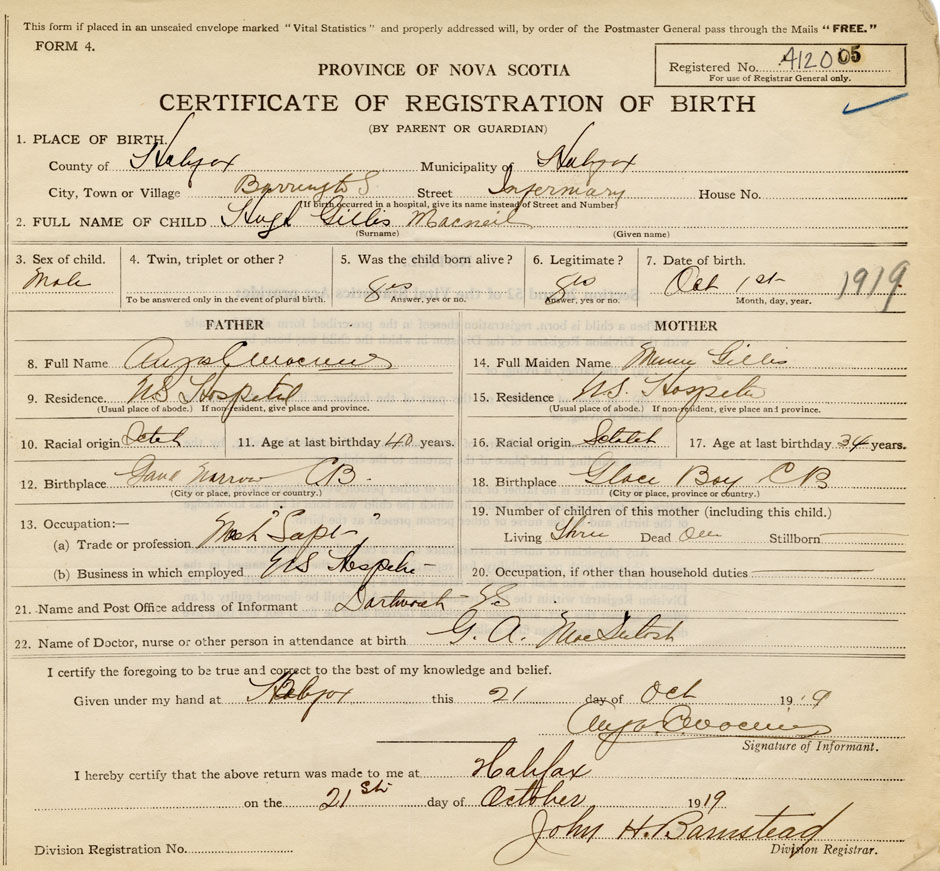 This form if placed in an unsealed envelope marked "Vital Statistics" and properly addressed will, by order of the Postmaster General pass through the Mails "FREE."
FORM 4.
Registered No. 412005
For use of Registrar General only.
PROVINCE OF NOVA SCOTIA
CERTIFICATE OF REGISTRATION OF BIRTH
(BY PARENT OR GUARDIAN)
1. PLACE OF BIRTH.
County of Halifax Municipality of Halifax
City, Town or Village Barrington S Street Infermary House No.
(If birth occurred in a hospital, give its name instead of Street and Number)
2. FULL NAME OF CHILD Hugh Gillis Macneil
(Surname) (Given name)
3. Sex of child. Male
4. Twin, triplet or other?
To be answered only in the event of plural birth.
5. Was the child born alive? yes
Answer, yes or no.
6. Legitimate? yes
Answer, yes or no.
7. Date of birth. Oct 1st 1919
Month, day, year.
FATHER
8. Full Name
9. Residence. NS Hospital
(Usual place of abode.) If non-resident, give place and province.
10. Racial origin 11. Age at last birthday 40 years.
12. Birthplace Narrow CB.
(City or place, province or country.)
13. Occupation:—
(a) Trade or profession
(b) Business in which employed NS Hospital
MOTHER
14. Full Maiden Name Gillis
15. Residence NS. Hospital
(Usual place of abode.) If non-resident, give place and province.
16. Racial origin Scotch 17. Age at last birthday 34 years.
18. Birthplace Glace Bay CB
(City or place, province or country.)
19. Number of children of this mother (including this child.)
Living Three Dead One Stillborn
20. Occupation, if other than household duties
21. Name and Post Office address of Informant Dartmouth NS
22. Name of Doctor, nurse or other person in attendance at birth G. A. MacIntosh
I certify the foregoing to be true and correct to the best of my knowledge and belief.
Given under my hand at Halifax this 21 day of Oct 1919
Signature of Informant.
I hereby certify that the above return was made to me at Halifax
on the 21st day of October 1919
John H. Barnstead
Division Registration No. Division Registrar.